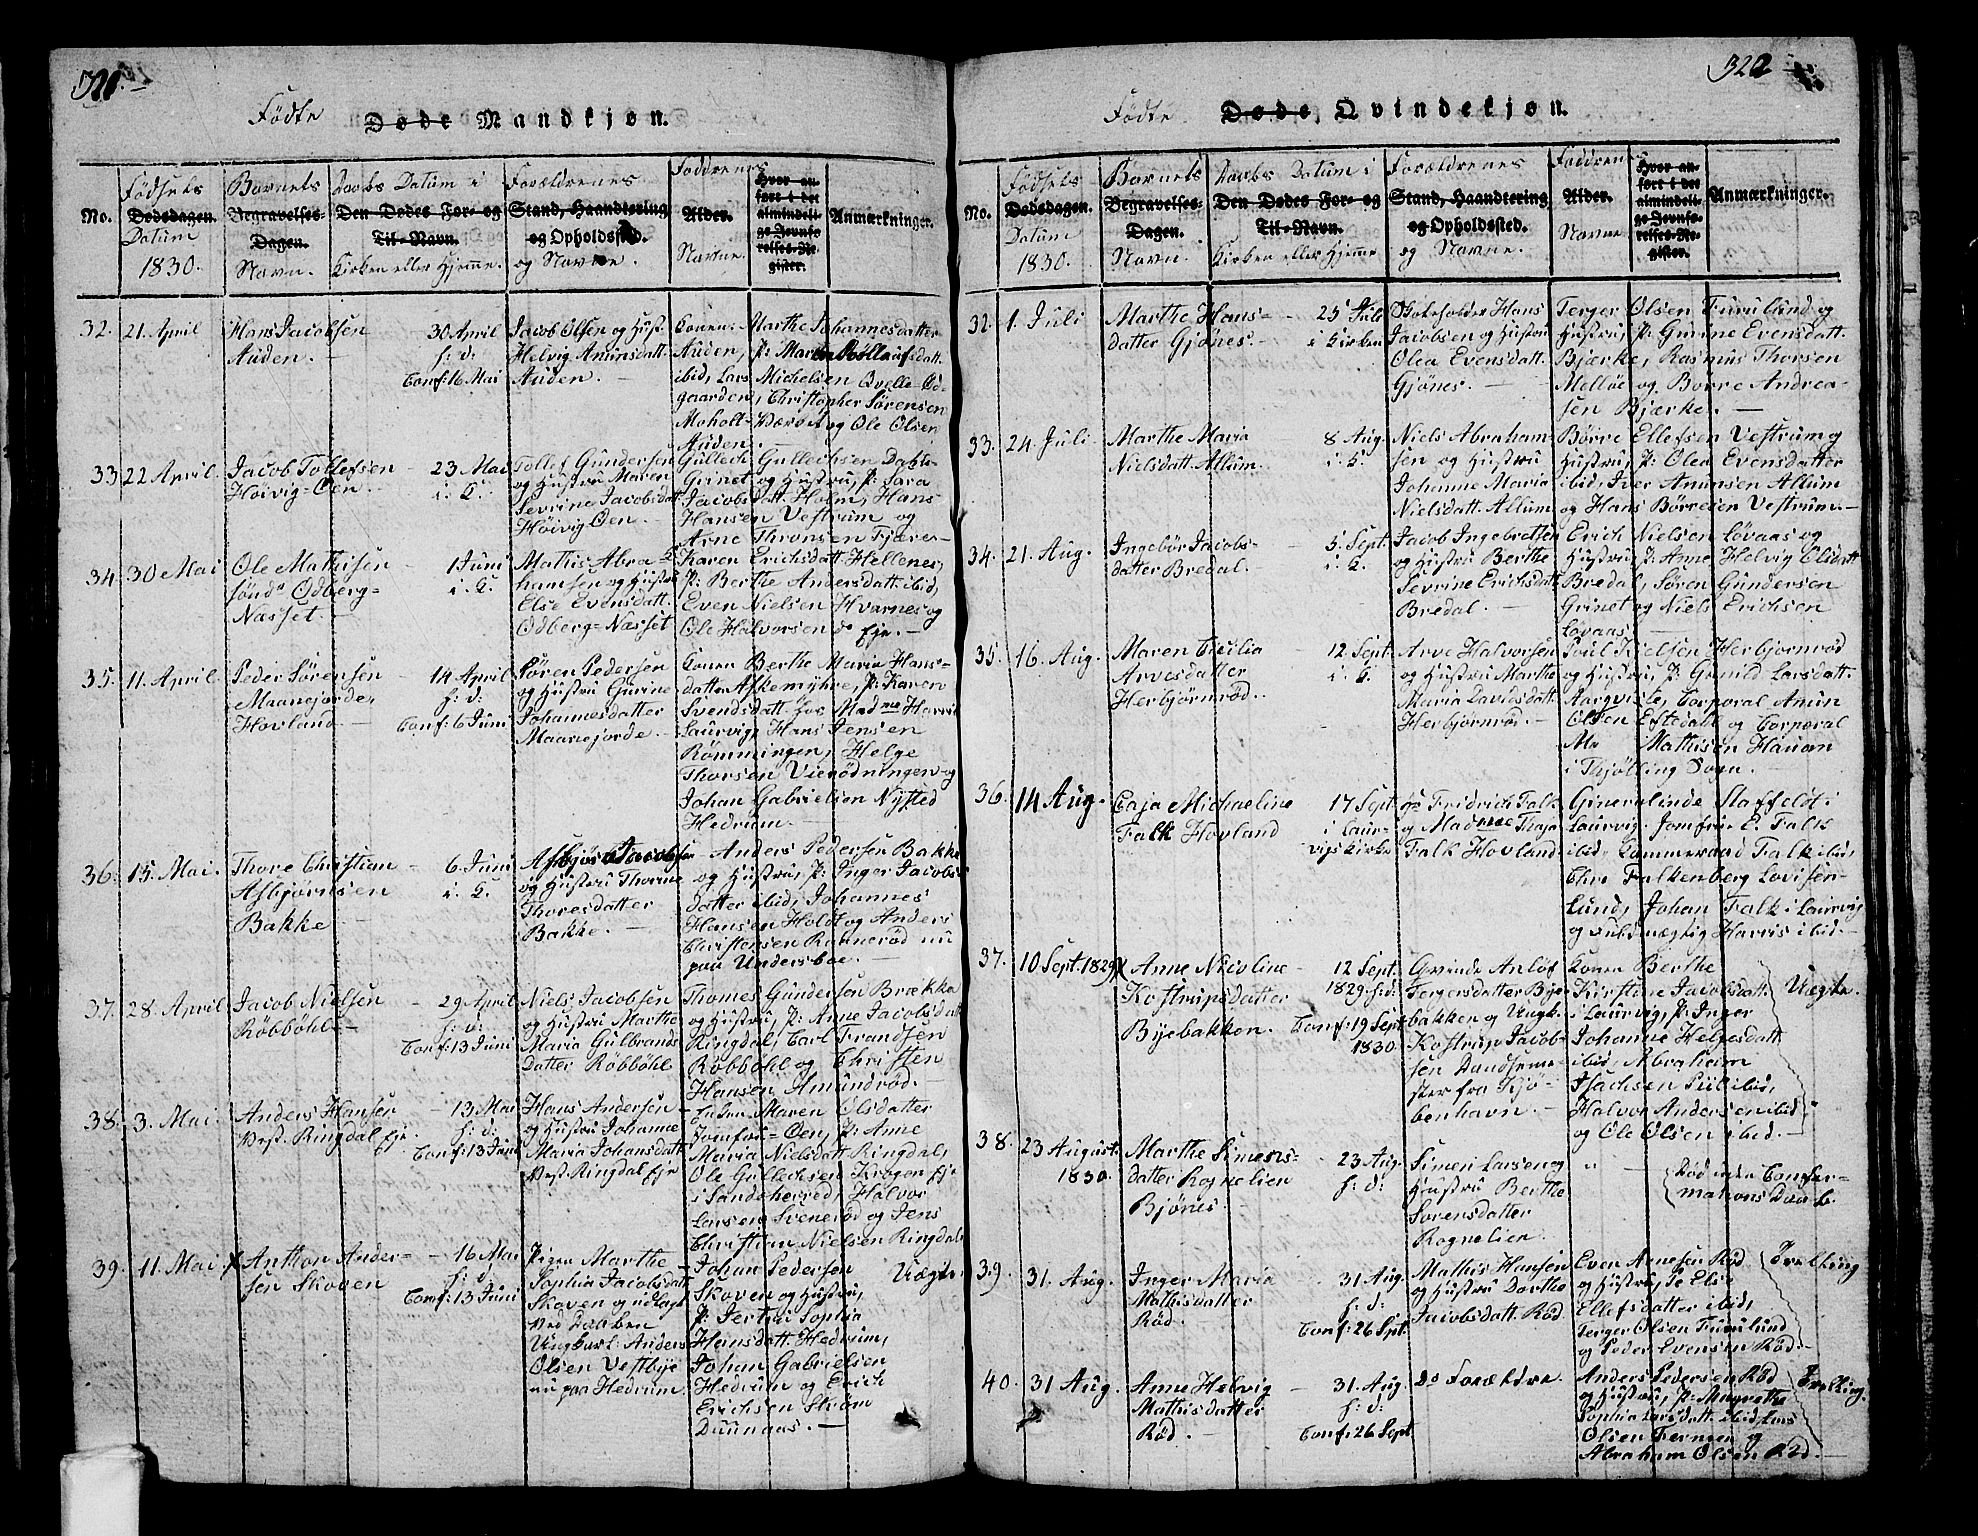 321.
Fødte
Døde Mandkjøn.
No.
Fødsels
Dødsdagen.
Datum
1830.
Barnets
Begravelses-
Dagen.
Navn.
Daabs Datum i
Den Dødes For- og
Til-Navn.
Kirken eller Hjemme.
Forældrenes
Stand, Haandtering
og Opholdssted.
og Navne.
Faddrenes
Alder.
Navne.
Hvor an-
ført i det
almindeli-
ge Jevnfø-
relses-Re-
gister.
Anmærkninger.
32.
21. April
Hans Jacobsen
Auden.
30 April
h: d:
Conf: 16 Mai
Jacob Olsen og Hust:
Helvig Amunsdatt.
Auden.
Konen: Marthe Johannesdatter
Auden, p: Maren Rollaufsdatt.
ibid, Lars Michelsen Qvelle-Ød-
gaarden, Christopher Sørensen
Moholt- og Ole Olsen
Auden.
33.
22 April.
Jacob Tollefsen
Høivig-Øen.
23 Mai
i. K.
Tollef Gundersen
og Hustru Maren
Sevrine Jacobsdatt.
Høivig Øen.
Gullech Gullechsen Dahl-
Grinet og Hustru, p: Sara
Jacobsdatt. Holm, Hans
Hansen Vestrum og
Arne Thronsen Fjære-
34.
30 Mai
Ole Mathisen
Odberg-
Næsset.
1 Juni
i. K.
Mathis Abra-
hamsen og Hustru
Else Evensdatt.
Odberg-Næsset
Karen Erichsdatt. Hellenes,
p: Berthe Andersdatt. ibid,
Even Nielsen Hvarnes og
Ole Halvorsen do Eje.
35.
11. April.
Peder Sørensen
Maanejorde,
Hovland.
14 April
h: d:
Conf: 6 Juni
Søren Pedersen
og Hustru Gurine
Johannesdatter
Maanejorde.
Konen Berthe Maria Hans-
datter Askemyhre, p: Karen
Svendsdatt. hos Madme Harris
Laurvig, Hans Jensen
Rømmingen, Helge
Thorsen Vierødningen og
Johan Gabrielsen Nysted
Hedrum.
36.
15. Mai.
Thore Christian
Asbjørnsen
Bakke
6 Juni
i. K.
Asbjørn Jacobsen
og Hustru Thorine
Thoresdatter
Bakke.
Anders Pedersen Bakke
og Hustru, p: Inger Jacobs-
datter ibid, Johannes
Hansen Holdt og Anders
Christensen Rannerød nu
paa Undersboe.
37.
28. April
Jacob Nielsen
Røbbøhl
29 April
h: d:
Conf: 13 Juni
Niels Jacobsen
og Hustru Marthe
Maria Gulbrands-
datter Røbbøhl
Thomes Gundersen Brække
og Hustru, p: Anne Jacobsdatt.
Ringdal, Carl Frandsen
Røbbøhl og Christen
Hansen Amundrød.
38.
3. Mai.
Anders Hansen
Vest. Ringdal Eje.
13 Mai
h: d:
Conf: 13 Juni
Hans Andersen
og Hustru Johanne
Maria Johansdatt.
Vest. Ringdal Eje
Enken Maren Olsdatter
Jomfru-Øen, p: Anne
Maria Nielsdatt. Ringdal,
Ole Gullechsen Krogen Eje
i Sandeherred, Halvor
Larsen Svenerød og Jens
Christian Nielsen Ringdal
39.
11. Mai.
Anthon Ander-
sen Skoven
16 Mai
h: d:
Conf: 13 Juni
Pigen Marthe
Sophia Jacobsdatt.
Skoven og udlagt
ved Daaben
Ungkarl Anders
Olsen Vestbye
nu paa Hedrum.
Johan Pedersen
Skoven og Hustru,
p: Jertru Sophia
Hansdatt. Hedrum,
Johan Gabrielsen
Hedrum og Erich
Erichsen Strøm
Duunaas.
Uægte.
322
Fødte
Døde, Qvindekjøn.
No.
Fødsels
Dødsdagen.
Datum
1830.
Barnets
Begravelses-
Dagen.
Navn.
Daabs Datum i
Den Dødes For- og
Til-Navn.
Kirken eller Hjemme
Forældrenes
Stand, Haandtering
og Opholdssted.
og Navne.
Faddrenes
Alder.
Navne
Hvor an-
ført i det
almindeli-
ge Jevnfø-
relses-Re-
gister.
Anmærkninger.
32.
1. Juli
Marthe Hans-
datter Gjønes.
25 Juli
i Kirken
Hans
Jacobsen og Hustru
Olea Evensdatt.
Gjønes.
Terger Olsen Furulund og
Hustru, p: Gurine Evensdatt.
Bjerke, Rasmus Thorsen
Melløe og Borre Andrea-
sen Bjærke.
33.
24. Juli.
Marthe Maria
Nielsdatt. Allum.
8 Aug.
i. K.
Niels Abraham-
sen og Hustru
Johanne Maria
Nielsdatt. Allum
Børre Ellefsen Vestrum og
Hustru, p: Olea Evensdatter
ibid, Iver Amunsen Allum
og Hans Børresen Vestrum.
34.
21. Aug.
Ingebor Jacobs-
datter Bredal.
5. Sept.
i. K.
Jacob Ingebretsen
og Hustru Berthe
Sevrine Erichsdatt.
Bredal.
Erich Nielsen Løvaas og
Hustru, p: Anne Helvig Olsdatt.
Bredal, Søren Gundersen
Grinet og Niels Erichsen
Løvaas
35.
16. Aug.
Maren Cicilia
Arvesdatter
Herbjørnrød.
12. Sept.
i. K.
Arve Halvorsen
og Hustru Marthe
Maria Davidsdatt.
Herbjørnrød.
Poul Nielsen Herbjørnrød
og Hustru, p: Gunild Larsdatt.
Aarqviste, Corporal Amun
Olsen Eftedahl og Corporal
Mathisen Hauan
i Thjølling Sogn.
36.
14 Aug.
Caja Michaeline
Falk Hovland
17 Sept.
i Laur-
vigs Kirke
Fridrich Falk
og Madame Thaja
Falk Hovland.
Generalinde Staffeldt i
Laurvig, Jomfru E. Falk
ibid, Cammerraad Falk ibid,
Chro Falkenberg Lovisen-
Lund, Johan Falk i Laurvig
og Fuldmægtig Harris ibid.
37.
10 Sept. 1829
Anne Nicoline
Kostrupsdatter
Byebakken.
12 Sept.
1829 h: d:
Conf: 19 Sept.
1830.
Qvinde Anløf
Tergersdatter Bye-
bakken og Ungk.
Kostrup Jacob-
sen Dandseme-
ster fra Kjø-
benhavn.
Konen Berthe
Kirstine Jacobsdatt.
i Laurvig, p: Inger
Johanne Helgesdatt.
ibid, Abraham
Isachsen Piil ibid,
Halvor Andersen ibid
og Ole Olsen ibid.
Uægte.
38.
23 August.
1830.
Marthe Simens-
datter Rognelien
Bjønes.
23 Aug.
h: d:
Simen Larsen og
Hustru Berthe
Sorensdatter
Rognelien.
Død uden Confir-
mations Daab.
39.
31. Aug.
Inger Maria
Mathisdatter
Rød.
31 Aug.
h: d:
Conf: 26 Spt.
Mathis Hansen
og Hustru Dorthe
Jacobsdatt. Rød
Even Arnesen Rød
og Hustru, p: Elie
Ellefsdatter ibid,
Terger Olsen Furulund
og Peder Evensen Rød.
Tvelking
40.
31 Aug.
Anne Helvig
Mathisdatter
Rød.
31. Aug.
h: d:
Conf: 26 Sept.
do Forældre.
Anders Pedersen Rød
og Hustru, p: Margrethe
Sophia Larsdatt. ibid, Lars
Olsen Fermen og
Abraham Olsen Rød.
Tvelking.